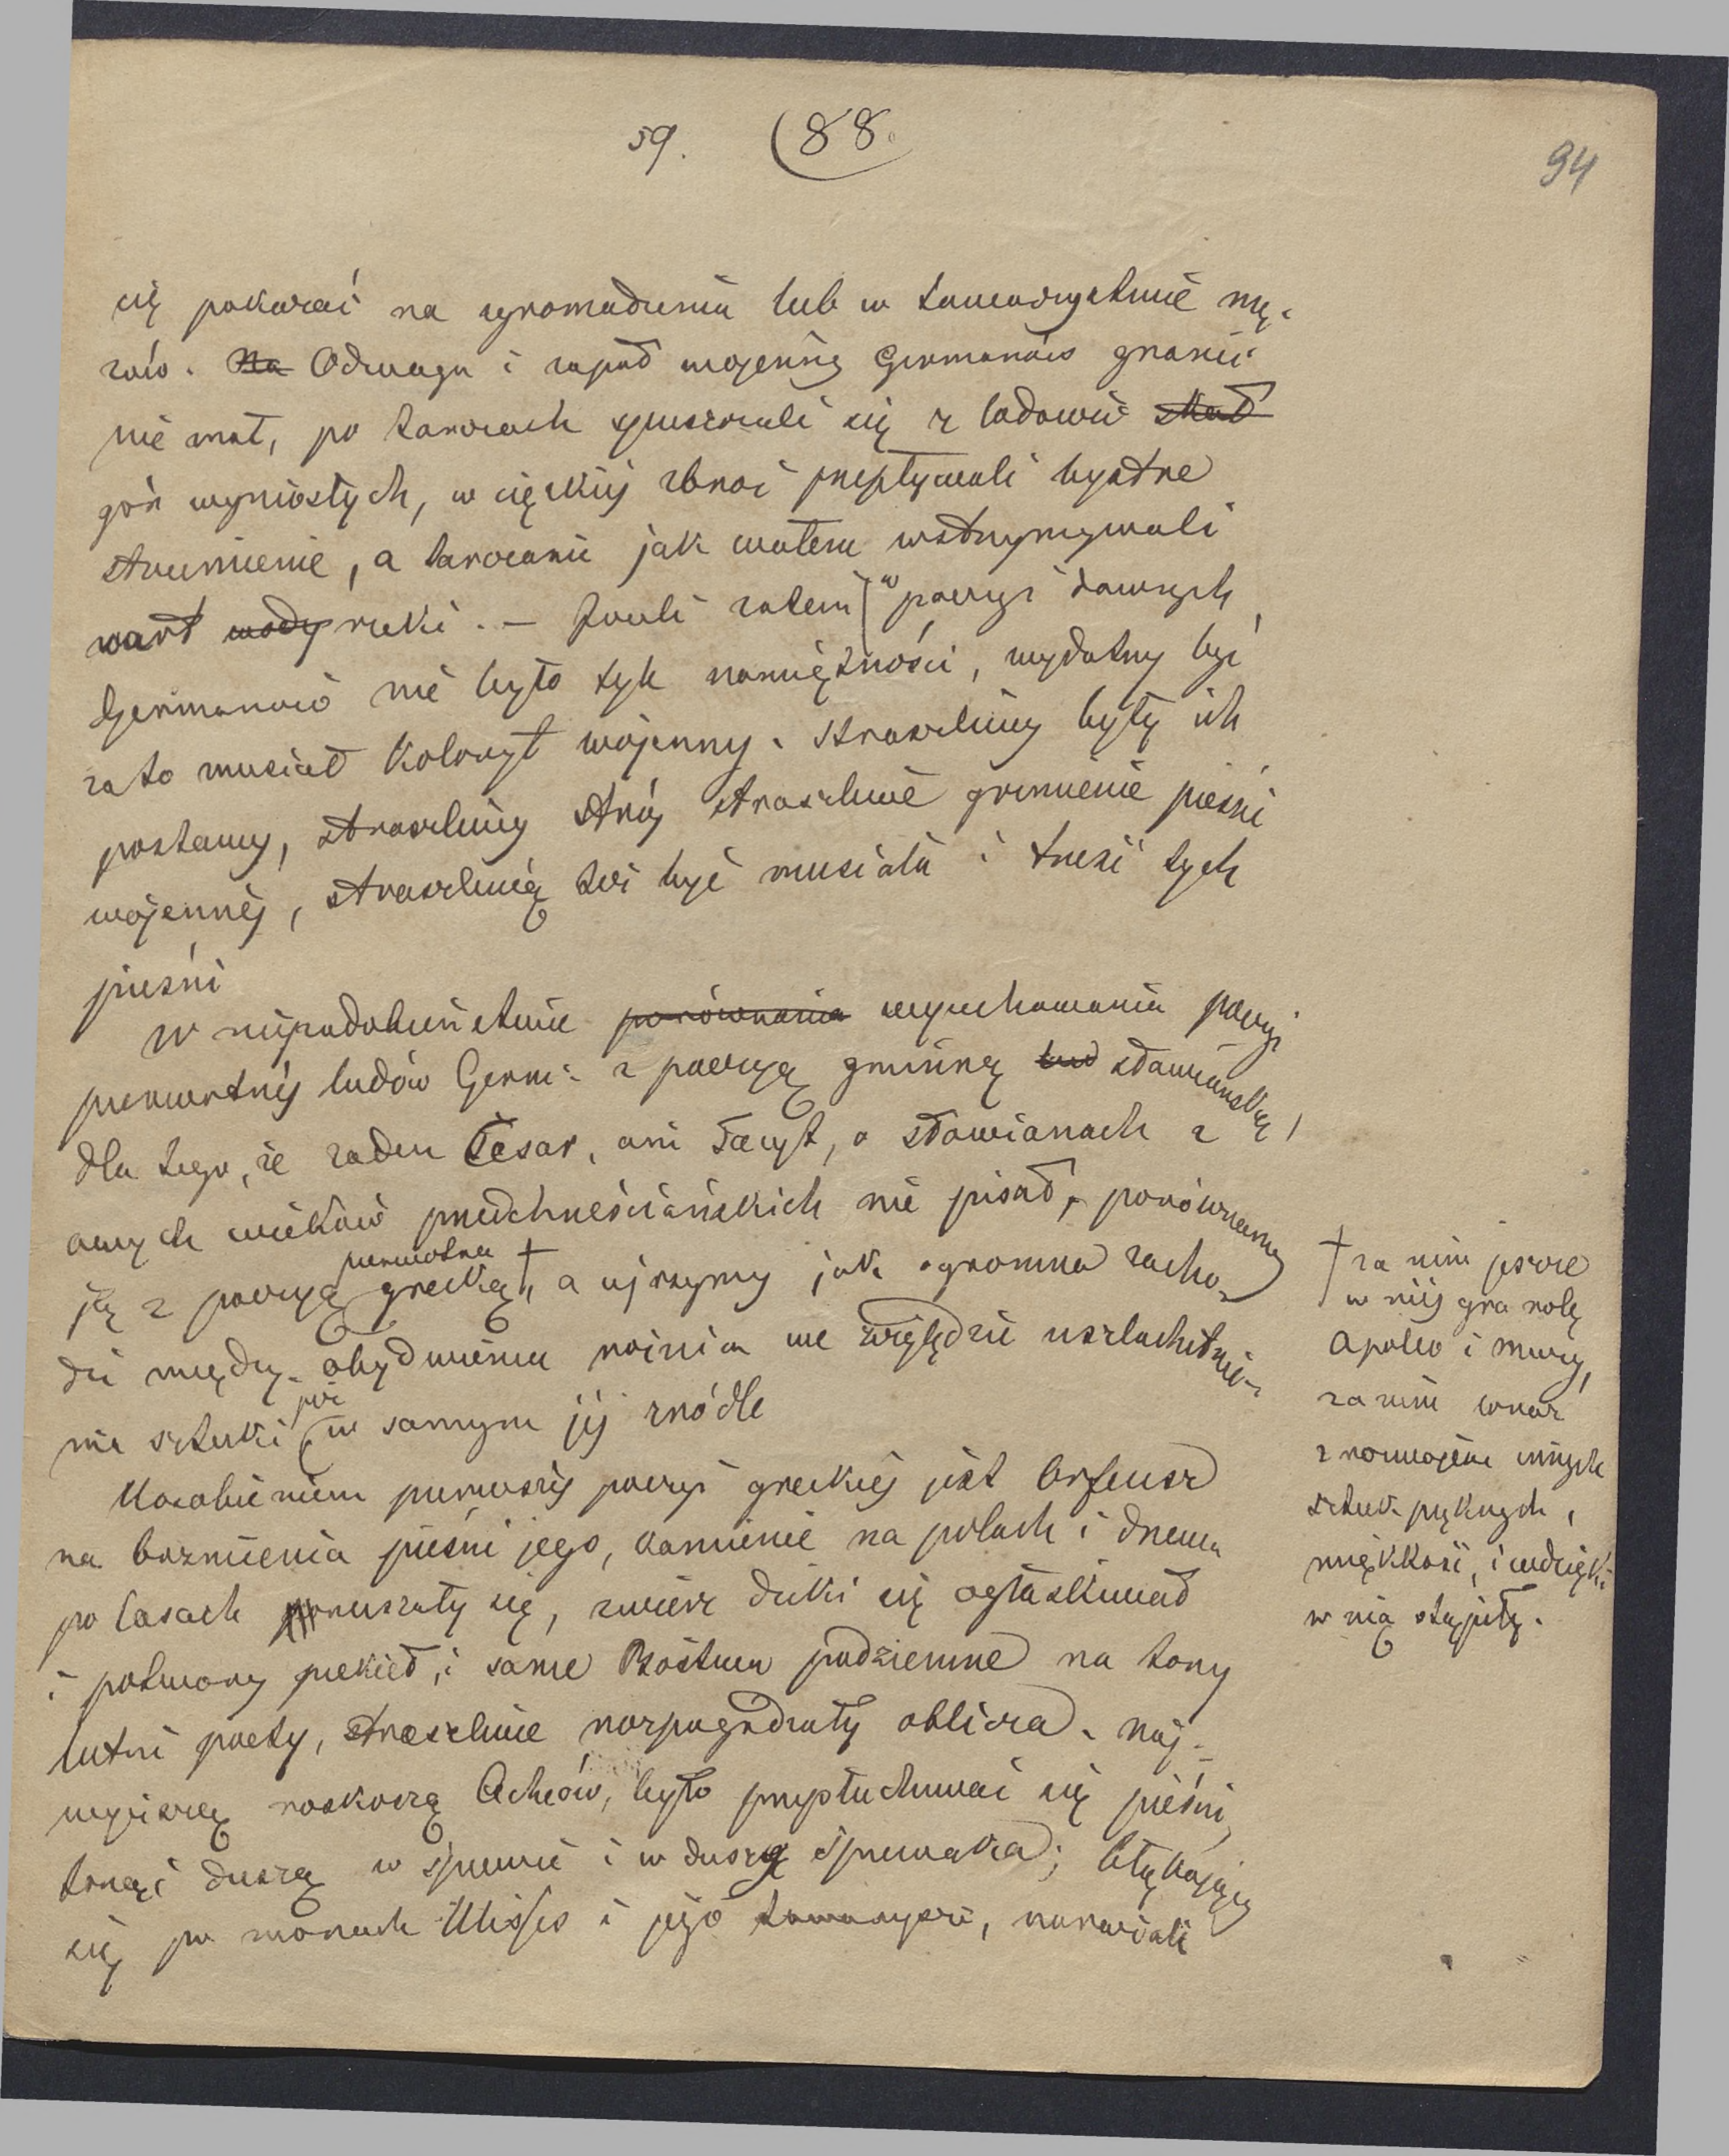 59. (88.
94
się pokazać na zgromadzeniu lub w towarzystwie mę-
żów. Na Odwaga i zapał wojenny Germanów granic
nie miał, po tarczach spuszczali się z lodowic skał
gór wyniosłych, w ciężkiéj zbroi przepływali bystre
strumienie, a tarczami jak watem wstrzymywali
wart wody rzeki. – Jeżeli zatem w poezyi dawnych
Germanów nie było tyle namiętności, wydatny być
zato musiał koloryt wojenny. Straszliwy były ich
postawy, straszliwy strój straszliwe grzmienie pieśni
wojennéj, straszliwą też być musiała i treść tych
pieśni
W niepodobieństwie porównania wysuchowania poezyi
pierwotnéj ludów Germ: z poezyą gminną lud sławiańską,
dla tego, że żaden Cesar, ani Tacyt, o Sławianach z
owych wieków przedchrześciańskich nie pisał, porównamy
ją z poezyą pierwotną grecką †, a ujrzymy jak ogromna zacho-
dzi między obydwiema różnica we względzie uszlachetnie-
nia sztuki już w samym jéj źródle
Uosobieniem pierwszéj poezyi greckiéj jest Orfeusz
na brzmienia pieśni jego, kamienie na polach i drzewa
po lasach poruszały się, zwierz dziki się ogłaskiwał
i potwory piekieł, i same Bóstwa podziemne na tony
lutni poety, straszliwe rozpogadzały oblicza. Naj-
wyższą roskoszą Acheów, było przysłuchiwać się pieśni,
tonąć duszą w śpiewie i w duszę śpiewaka; błąkający
się po morzach Ulisses i jego towarzysze, narażali
† za nim jeszcze
w niéj gra rolę
Apollo i muzy,
za nim wraz
z rozwojem innych
sztuk pięknych,
miękkość, i wdzięki
w nią stąpiły.